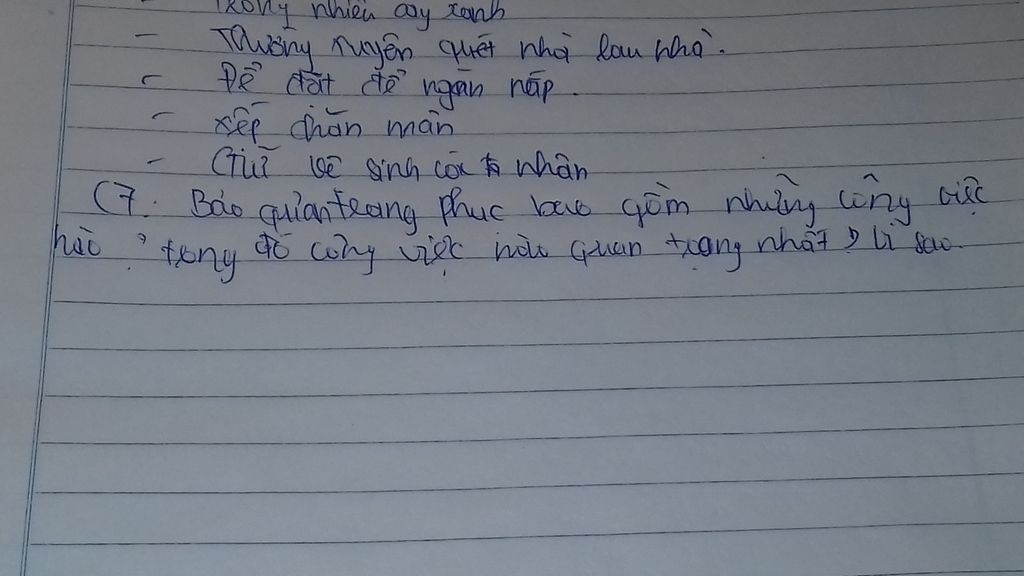 Trồng nhiều cây xanh
- Thường xuyên quét nhà lau nhà.
- Để đặt để ngăn nắp.
- xếp chăn màn
- Giữ vệ sinh cá nhân
C7. Bảo quản trang phục bao gồm những công việc
nào? trong đó công việc nào quan trọng nhất? Vì sao.